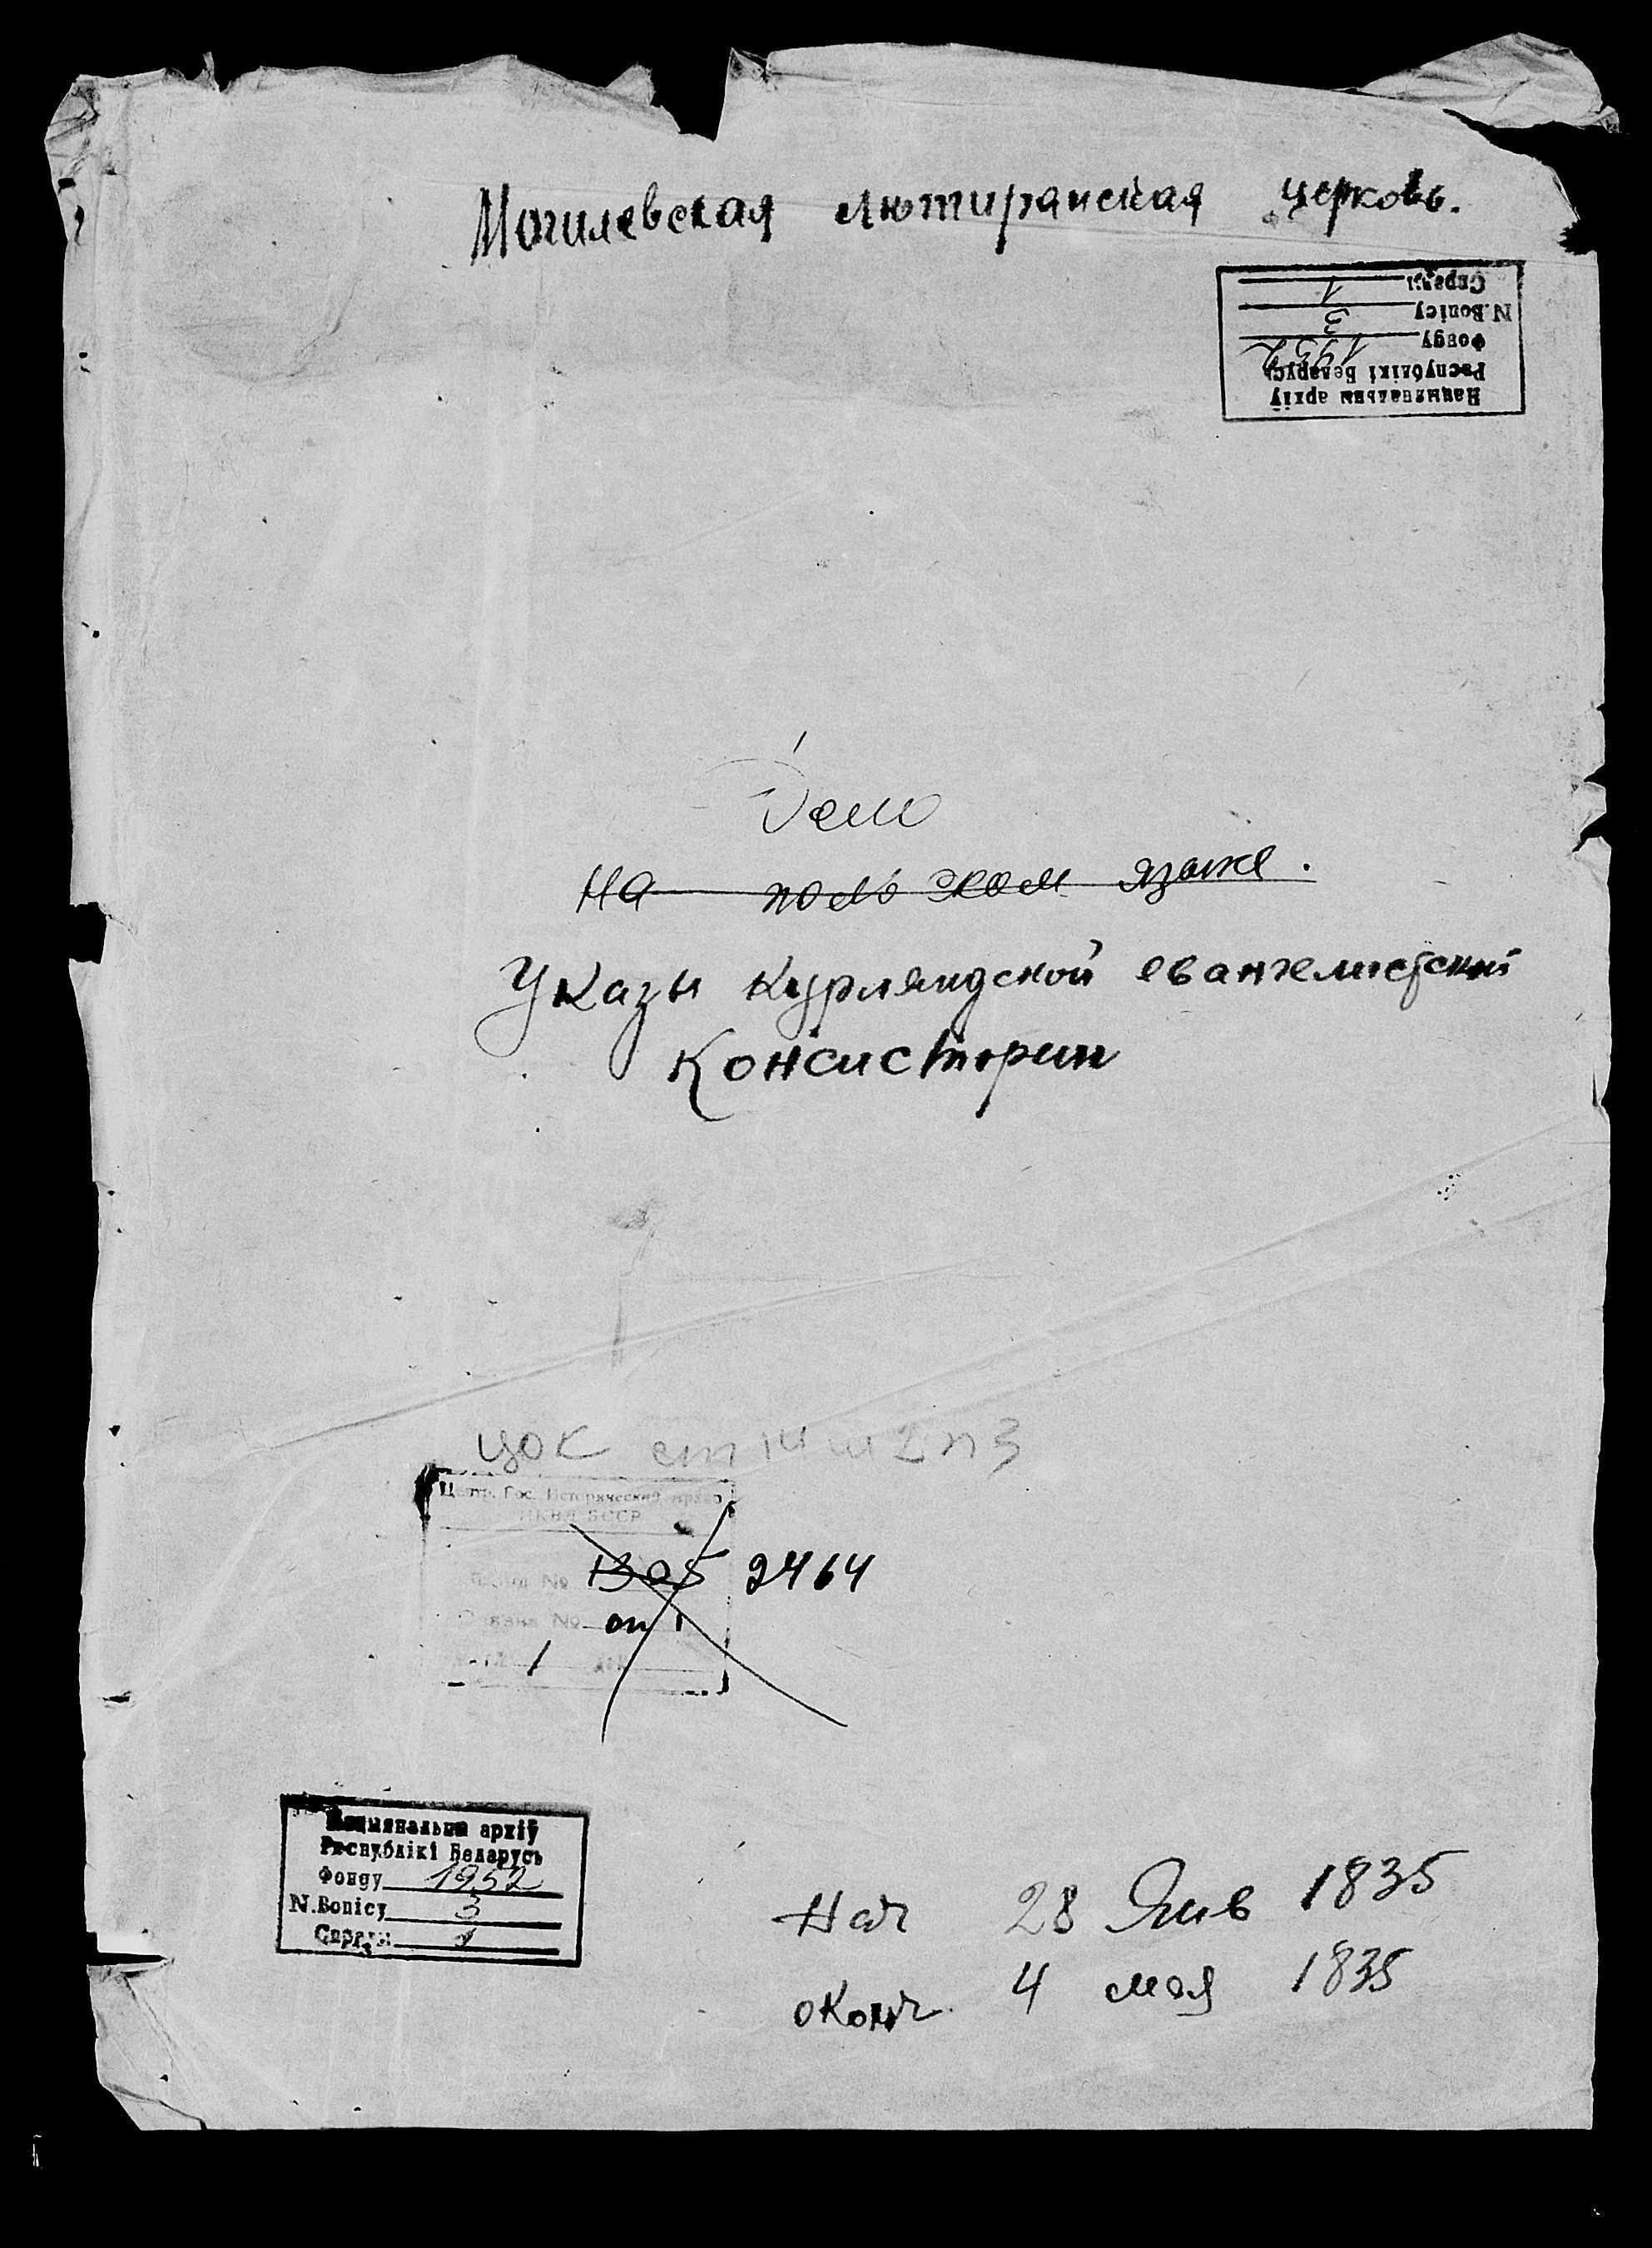 Могилевская лютиранская церковь.
Нацыянальны архіў
Рэспублікі Беларусь
Фонду 1952
N.Вопісу 3
Справы 1
Дело
На польском языке.
Указы Курляндской евангелистской
Консистории
ЦОК ст 14 ш 2 п 3
Центр. Гос. Исторический архив
НКВД БССР
№ 1305 2464
№ оп 1
1
Нацыянальны архіў
Рэспублікі Беларусь
Фонду 1952
N.Вопісу 3
Справы 1
Нач 28 Янв 1835
оконч. 4 мая 1835